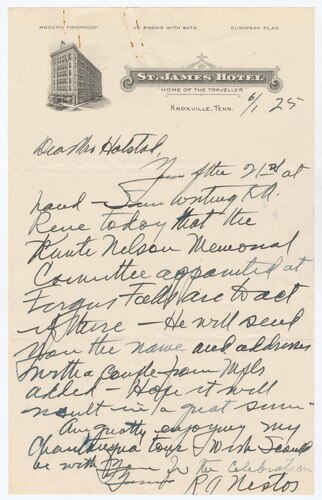 MODERN FIREPROOF 115 ROOMS WITH BATH EUROPEAN PLAN
ST. JAMES HOTEL
"HOME OF THE TRAVELLER"
KNOXVILLE, TENN. 6/1 25
Dear Mr Holstad,
Yours of the 21st at
hand - I am writing K.A.
Rene today that the
Knute Nelson Memorial
Committee appointed at
Fergus Falls are to act
- He will send
you the name and addresses
with a couple from Mpls
added - Hope it will
result in a great sum -
Am greatly enjoying my
Chautauqua tour I wish I could
be with you in the celebration
R A Nestos